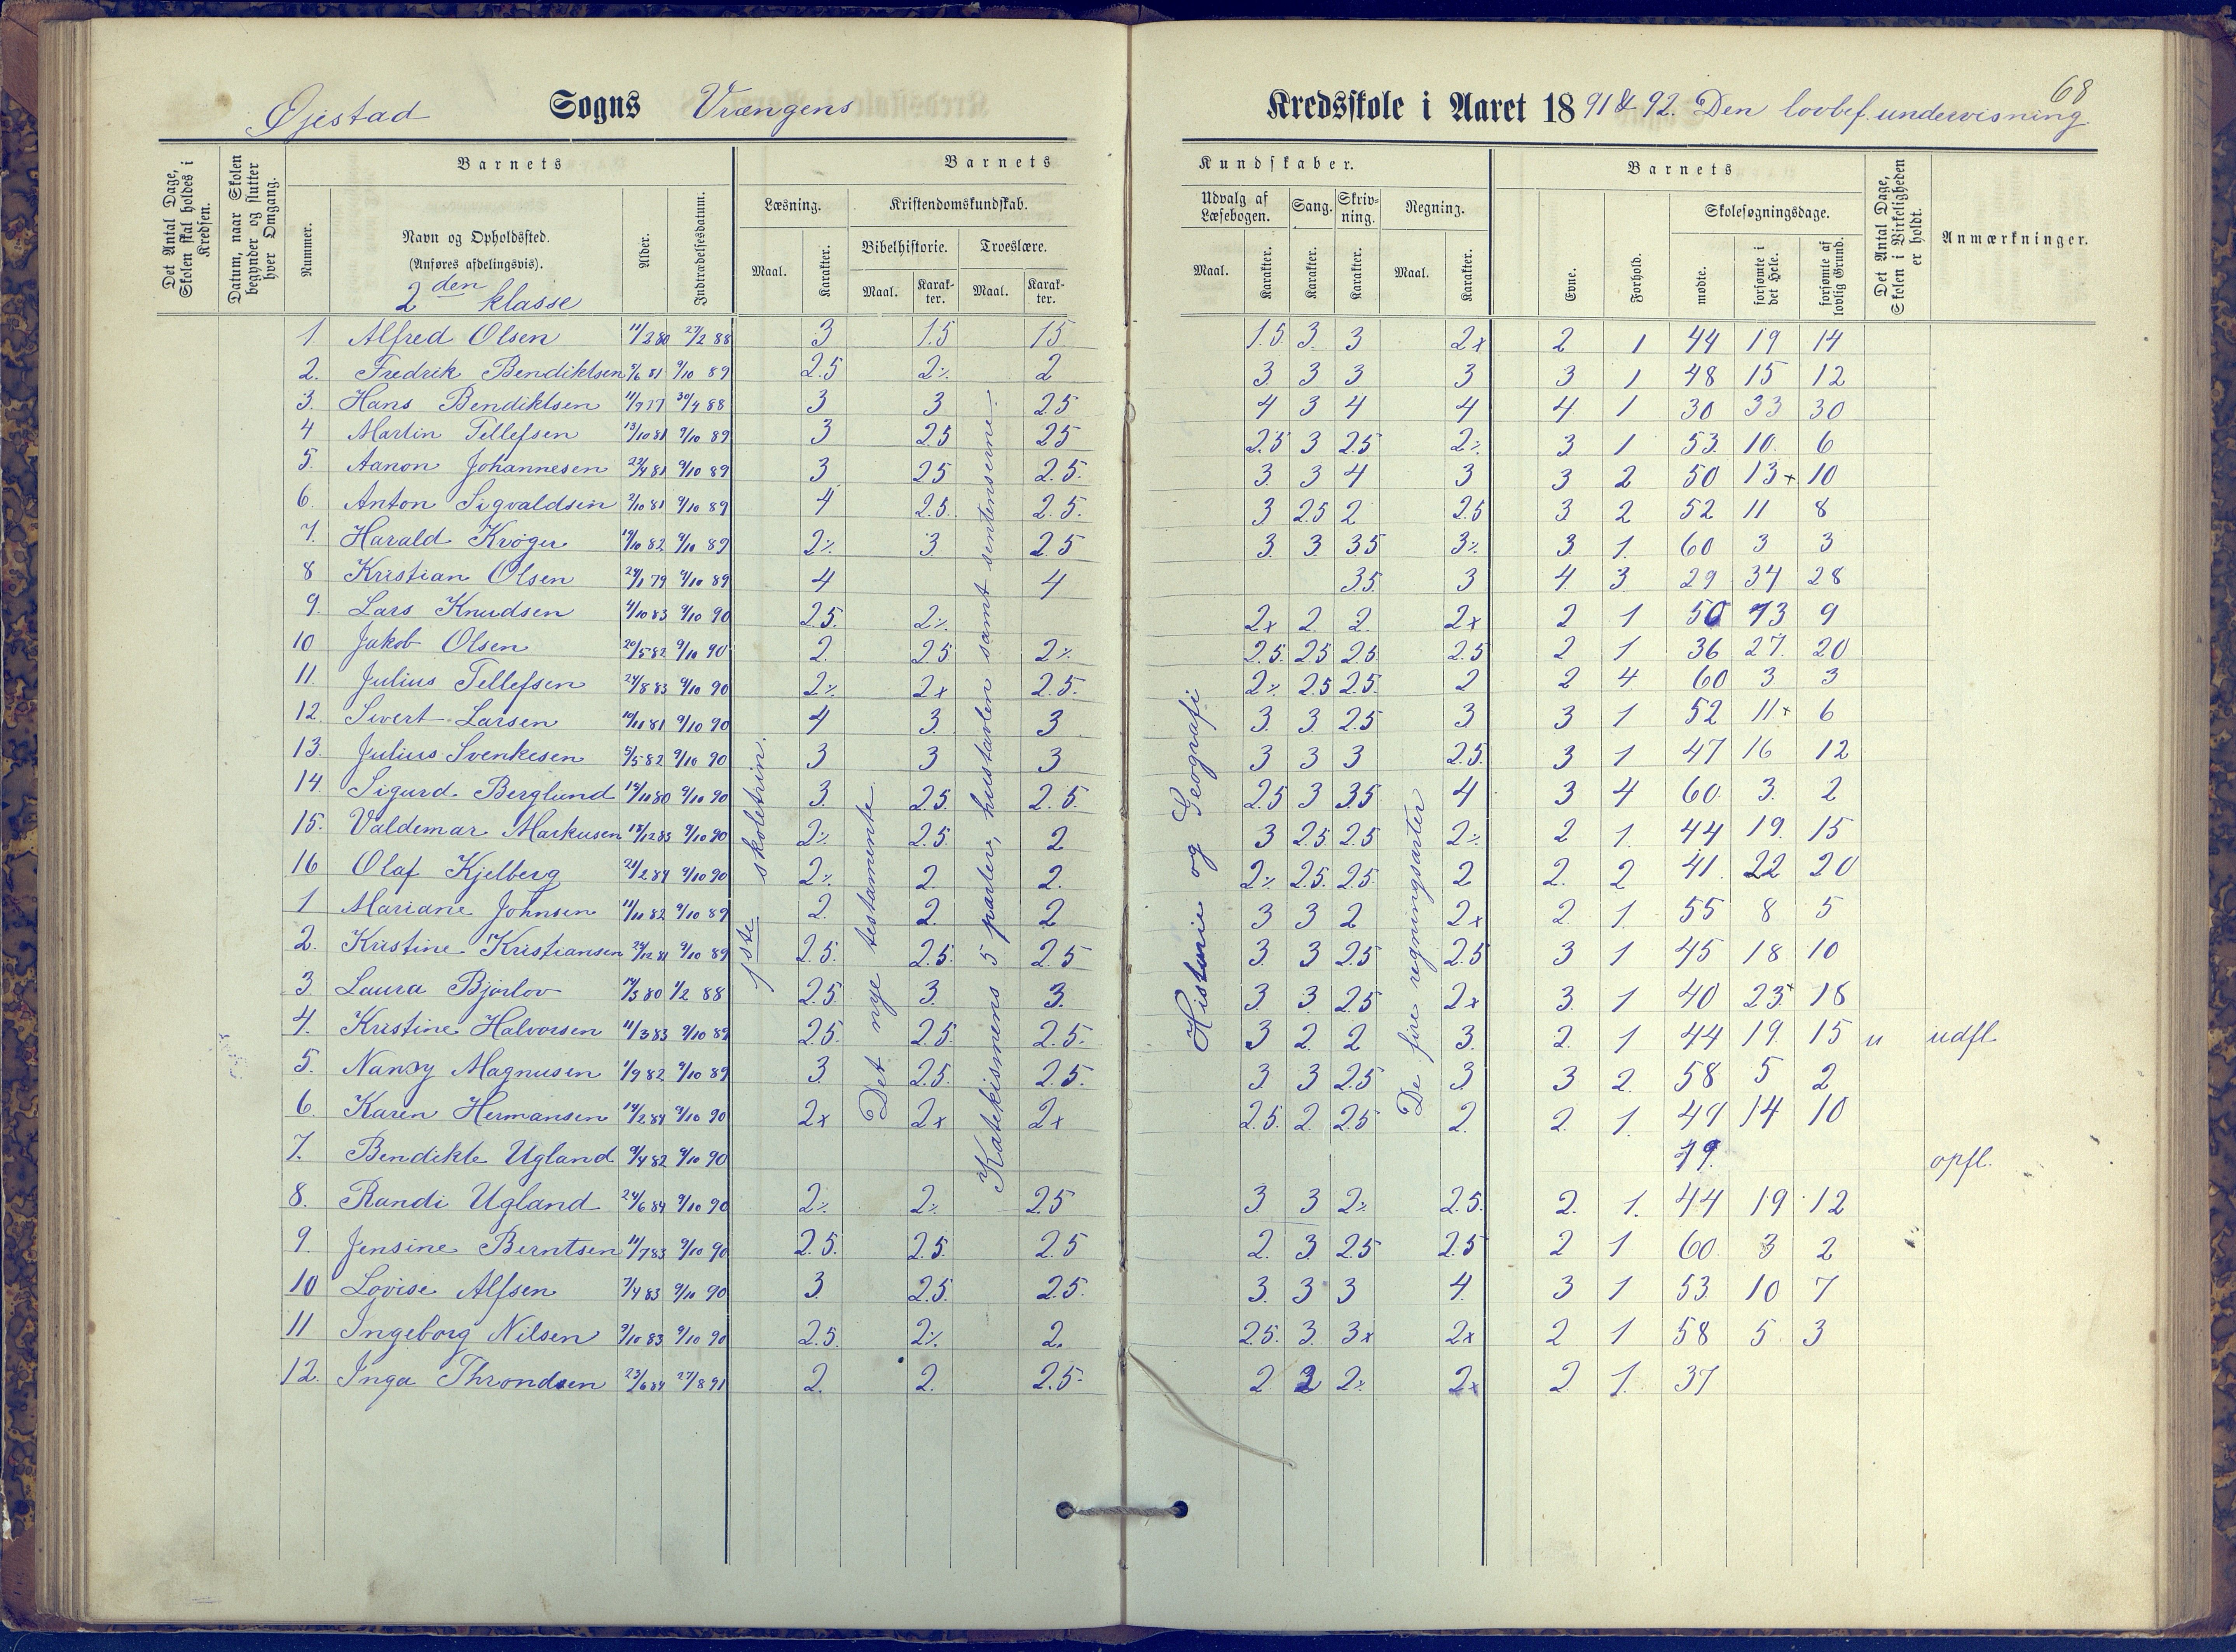 68
Øjestad Sogns Vrængens Kredsskole i Aaret 1891 & 92. Den lovbef. undervisning.
Det Antal Dage, Skolen skal holdes i Kredsen.
Datum, naar Skolen begynder og slutter hver Omgang.
Barnets
Nummer.
Navn og Opholdssted.
(Anføres afdelingsvis).
2den klasse
Alder.
Indtrædelsesdatum.
Barnets Kundskaber.
Læsning.
Maal.
Karakter.
Kristendomskundskab.
Bibelhistorie.
Maal.
Karakter.
Troeslære.
Maal.
Karakter.
Udvalg af Læsebogen.
Maal.
Karakter.
Sang.
Karakter.
Skrivning.
Karakter.
Regning.
Maal.
Karakter.
Barnets
Evne.
Forhold.
Skolesøgningsdage.
mødte.
forsømte i det Hele.
forsømte af lovlig Grund.
Det Antal Dage, Skolen i Virkeligheden er holdt.
Anmærkninger.
1ste skoletrin.
Det nye testamente
Katekismens 5 parter, hustavlen samt sentenserne.
Historie og Geografi
De fire regningsarter
1 Alfred Olsen 11/2 80 27/2 88 3 1.5 1.5 1.5 3 3 2x 2 1 44 19 14
2. Fredrik Bendiktsen 9/6 81 9/10 89 2.5 2% 2 3 3 3 3 3 1 48 15 12
3. Hans Bendiktsen 11/9 77 30/4 88 3 3 2.5 4 3 4 4 4 1 30 33 30
4 Martin Tellefsen 13/10 81 9/10 89 3 2.5 2.5 2.5 3 2.5 2% 3 1 53 10 6
5. Aanon Johannesen 22/4 81 9/10 89 3 2.5 2.5 3 3 4 3 3 2 50 13+ 10
6. Anton Sigvaldsen 2/10 81 9/10 89 4 2.5 2.5 3 2.5 2 2.5 3 2 52 11 8
7. Harald Krøger 19/10 82 9/10 89 2% 3 2.5 3 3 3.5 3% 3 1 60 3 3
8 Kristian Olsen 24/1 79 9/10 89 4 4 3.5 3 4 3 29 34 28
9. Lars Knudsen 4/10 83 9/10 90 2.5 2% 2x 2 2 2x 2 1 50 13 9
10 Jakob Olsen 20/5 82 9/10 90 2 2.5 2% 2.5 2.5 2.5 2.5 2 1 36 27 20
11. Julius Tellefsen 24/8 83 9/10 90 2% 2x 2.5 2% 2.5 2.5 2 2 4 60 3 3
12. Sivert Larsen 10/11 81 9/10 90 4 3 3 3 3 2.5 3 3 1 52 11+ 6
13. Julius Svenkesen 5/5 82 9/10 90 3 3 3 3 3 3 2.5 3 1 47 16 12
14. Sigurd Berglund 19/11 80 9/10 90 3 2.5 2.5 2.5 3 3.5 4 3 4 60 3 2
15. Valdemar Markusen 18/12 83 9/10 90 2% 2.5 2 3 2.5 2.5 2% 2 1 44 19 15
16 Olaf Kjelberg 21/2 84 9/10 90 2% 2 2 2% 2.5 2.5 2 2 2 41 22 20
1 Mariane Johnsen 11/11 82 9/10 89 2 2 2 3 3 2 2x 2 1 55 8 5
2. Kristine Kristiansen 24/12 81 9/10 89 2.5 2.5 2.5 3 3 2.5 2.5 3 1 45 18 10
3 Laura Bjørlov 1/2 88 2.5 3 3 3 3 2.5 2x 3 1 40 23+ 18
4. Kristine Halvorsen 11/3 83 9/10 89 2.5 2.5 2.5 3 2 2 3 2 1 44 19 15 " udfl.
5. Nancy Magnusen 1/9 82 9/10 89 3 2.5 2.5 3 3 2.5 3 3 2 58 5 2
6 Karen Hermansen 14/2 84 9/10 90 2x 2x 2x 2.5 2 2.5 2 2 1 49 14 10
7. Bendikte Ugland 9/4 82 9/10 90 opfl.
8. Randi Ugland 24/6 84 9/10 90 2% 2% 2.5 3 3 2% 2.5 2 1 44 19 12
9. Jensine Berntsen 11/7 83 9/10 90 2.5 2.5 2.5 2 3 2.5 2.5 2 1 60 3 2
10 Lovise Alfsen 7/4 83 9/10 90 3 2.5 2.5 3 3 3 4 3 1 53 10 7
11 Ingeborg Nilsen 9/10 83 9/10 90 2.5 2% 2 2.5 3 3x 2x 2 1 58 5 3
12. Inga Throndsen 23/6 84 27/8 91 2 2 2.5 2 2 2% 2x 2 1 37